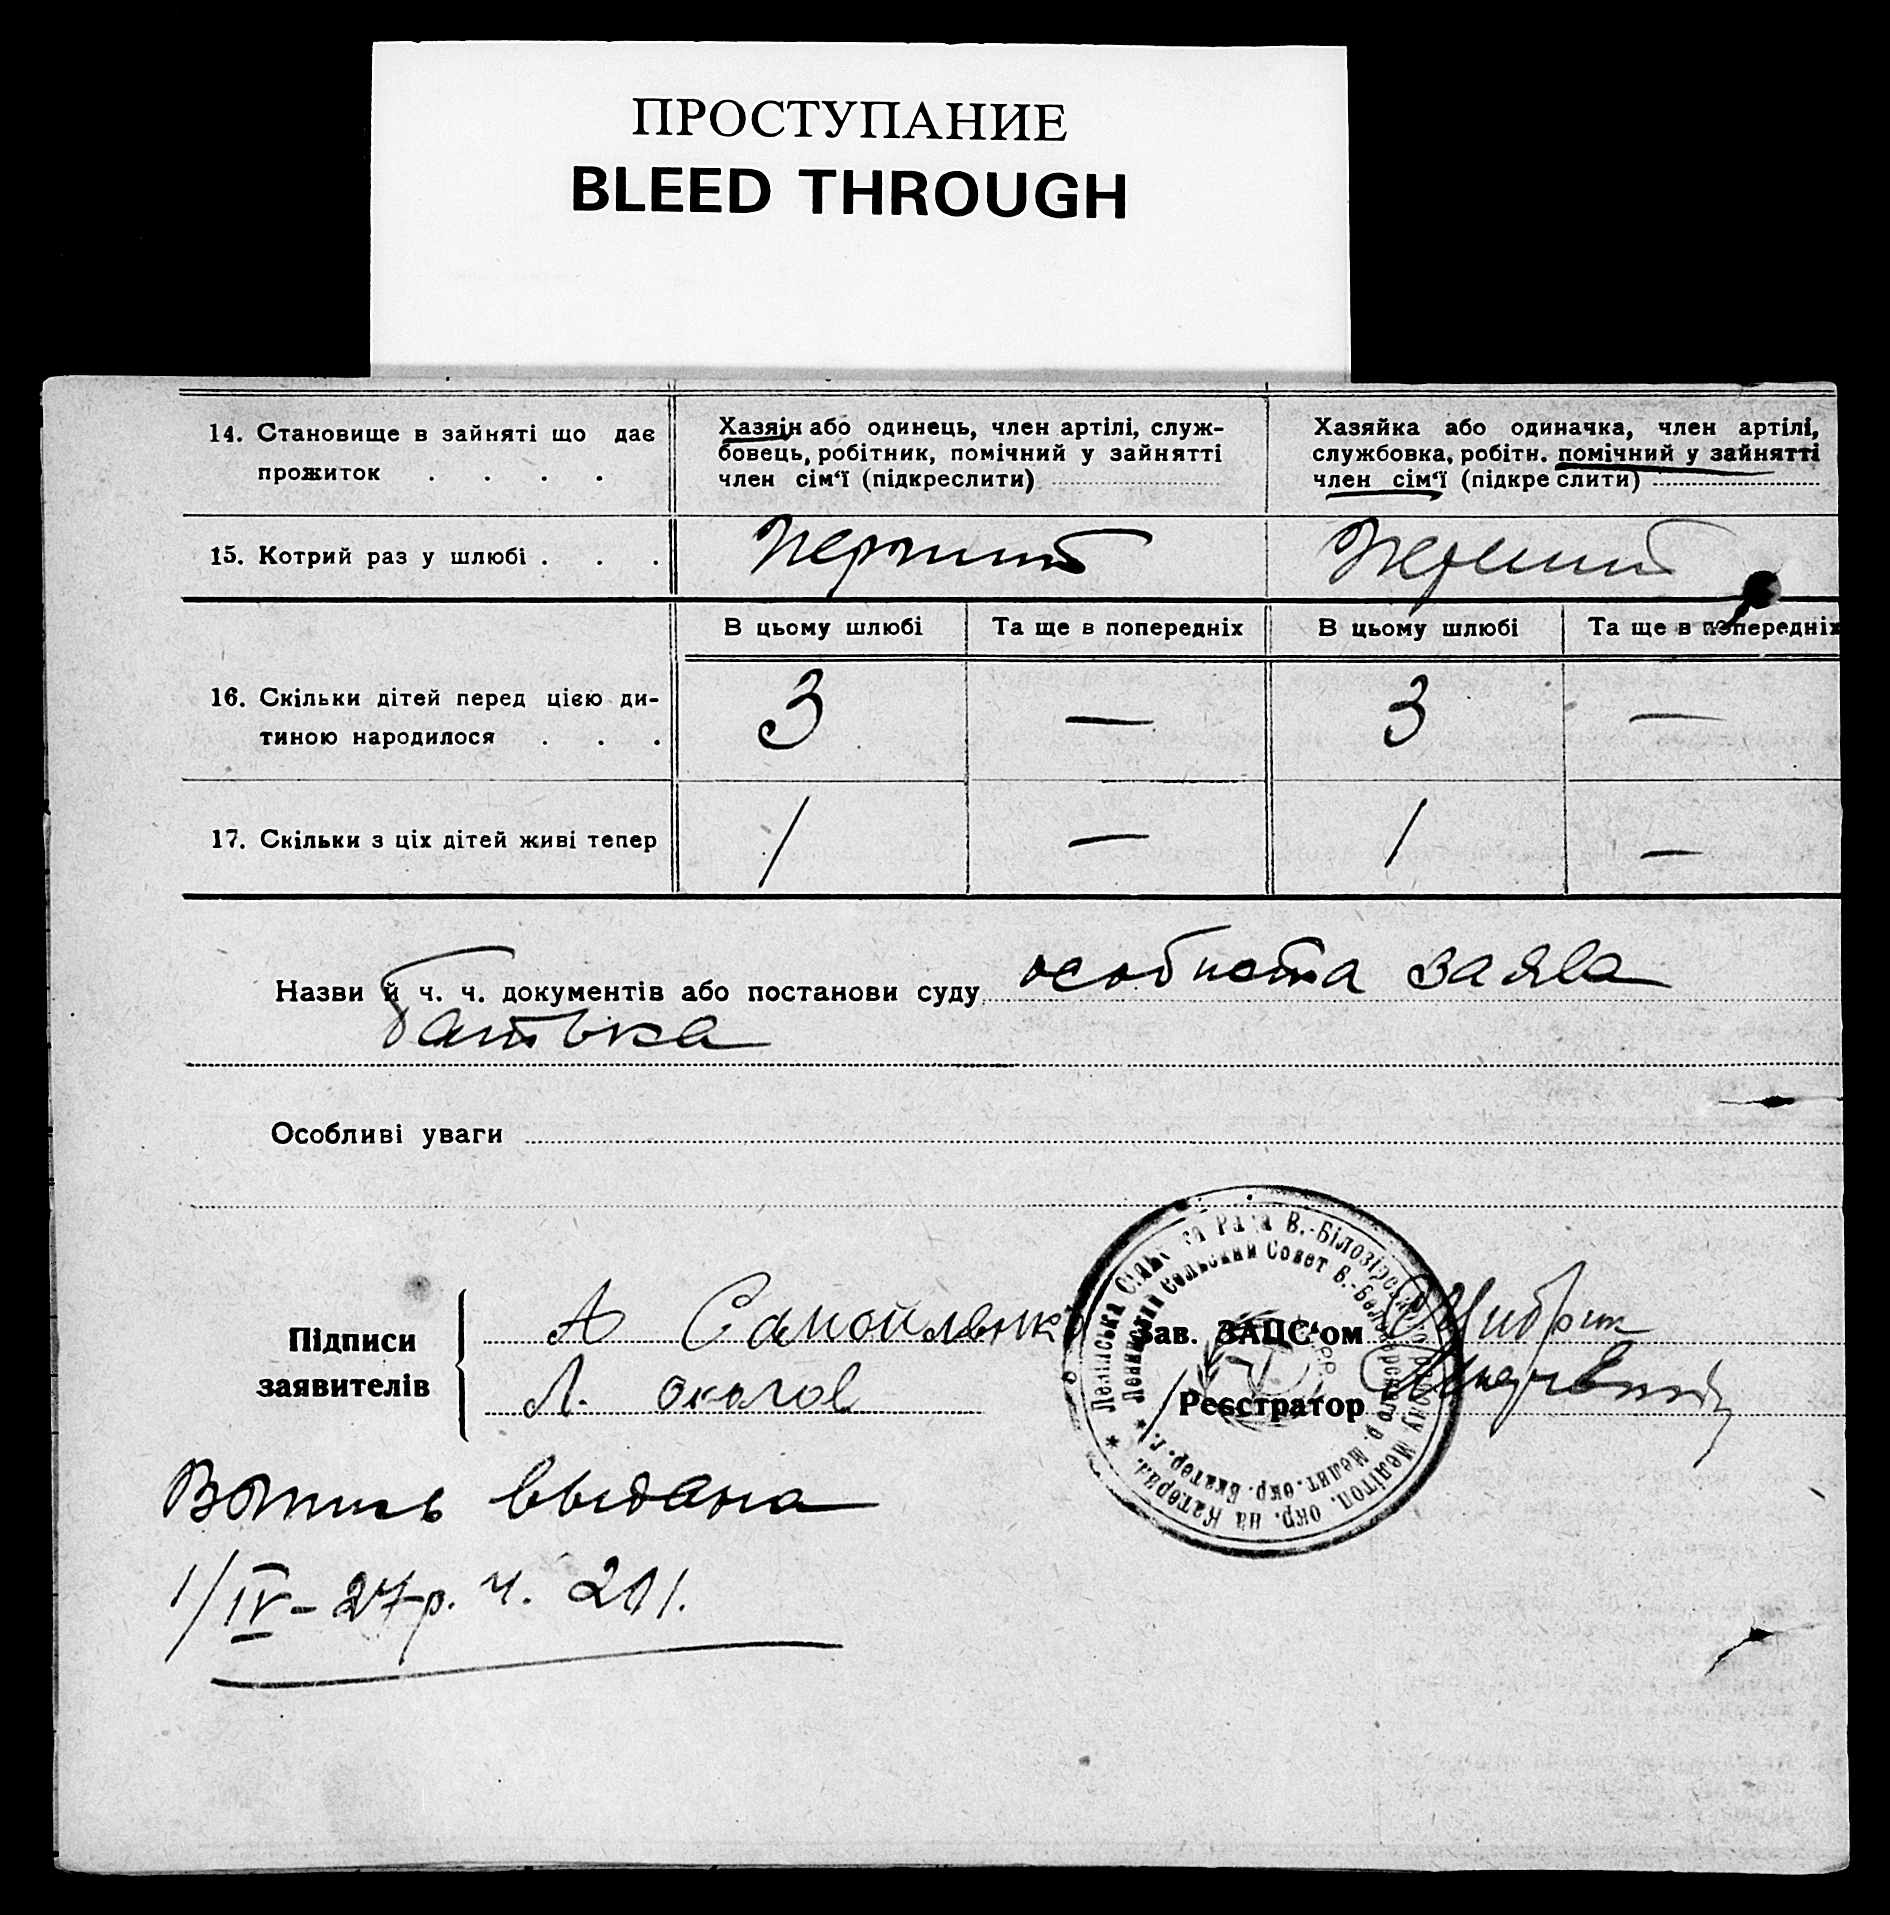 ПРОСТУПАНИЕ
BLEED THROUGH
14. Становище в зайняті що дає прожиток . . . .
Хазяін або одинець, член артілі, служ-
бовець, робітник, помічний у зайнятті
член сім'ї (підкреслити)
Хазяйка або одиначка, член артілі,
службовка, робітн. помічний у зайнятті
член сім'ї (підкреслити)
15. Котрий раз у шлюбі . . .
Перший
Перший
В цьому шлюбі
Та ще в попередніх
В цьому шлюбі
Та ще в попередніх
16. Скільки дітей перед цією ди-
тиною народилося . . .
3 — 3 —
17. Скільки з ціх дітей живі тепер
1 — 1 —
Назви й ч. ч. документів або постанови суду особиста заява
батька
Особливі уваги
Підписи
заявителів
А Самойленко
Л.
Зав. ЗАЦС'ом
Реєстратор
Ленінська Сільська Рада В.-Білозірського району Мелітоп. окр. на Катерин.
Ленинский Сельский Совет В.-Белозерского р. Мелит. окр. Екатер. г.
выдана
1/IV-27р. ч. 201.